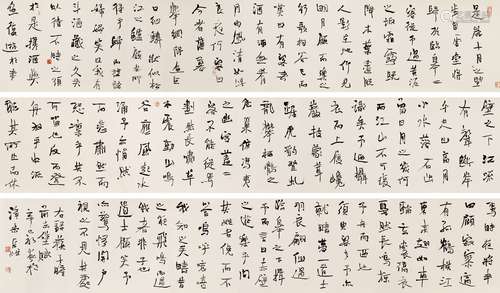 是歲十月之望
步自雪堂將
歸於臨皋二
客從予過黃泥
之坂霜露既
降木葉盡脫
人影在地仰見
明月顧而樂之
行歌相答已
而歎曰有客
無酒有酒無肴
月白風清如此
良夜何客曰
今者薄暮
舉網得魚巨
口細鱗狀似松
江之鱸顧安所
得乎歸而謀諸
婦婦曰我有斗
酒藏之久矣
以待子不時之須
於是攜酒與
魚復遊於赤
壁之下江流
有聲斷岸
千尺山高月小
水落石出
曾日月之幾何
而江山不可復
識矣予乃攝
衣而上履巉
巖披蒙茸
踞虎豹登虬
龍攀棲鶻
之危巢俯馮夷
之幽宮蓋二
客不能從焉
劃然長嘯草
木震動山鳴
谷應風起水
涌予亦悄然
而悲肅然而
恐凜乎其不
可留也反而登
舟放乎中流
聽其所止而休
焉時夜將半
四顧寂寥適
有孤鶴橫江
東來翅如車
輪玄裳縞衣
戛然長鳴掠
予舟而西也
須臾客去予亦
就睡夢一道士
羽衣翩僊過
臨皋之下揖
予而言曰赤壁
之遊樂乎問
其姓名俛而不
答嗚呼噫嘻
我知之矣疇昔
之夜飛鳴而過
我者非子也耶
道士顧笑予亦
驚寤開戶
視之不見其處
右蘇軾
後赤壁賦